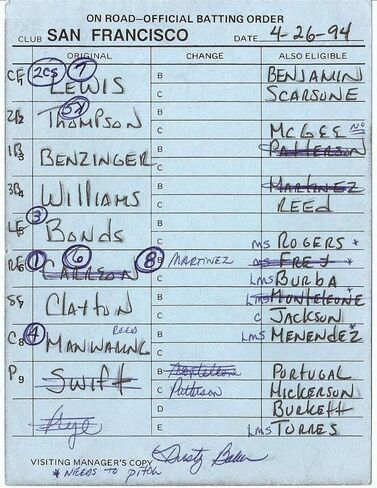 ON ROAD—OFFICIAL BATTING ORDER
CLUB SAN FRANCISCO DATE 4-26-94
ORIGINAL CHANGE ALSO ELIGIBLE
CF 1 LEWIS 7 B BENJAMIN
C SCARSONE
2B 2 THOMPSON B
C McGEE
1B 3 BENZINGER B PATTERSON
C
3B 4 WILLIAMS B MARTINEZ
C REED
LF 5 3 BONDS B
C MS ROGERS *
RF 6 1 CARREON 6 8 B MARTINEZ MS FREY *
C LMS BURBA
SS 7 CLAYTON B LMS MONTELEONE
C C JACKSON
C 8 4 MANWARING REED B LMS MENENDEZ *
C
P 9 SWIFT B MONTELEONE PORTUGAL
C PATTERSON HICKERSON
D BURKETT
E LMS TORRES
VISITING MANAGER'S COPY Dusty Baker
* NEEDS TO PITCH